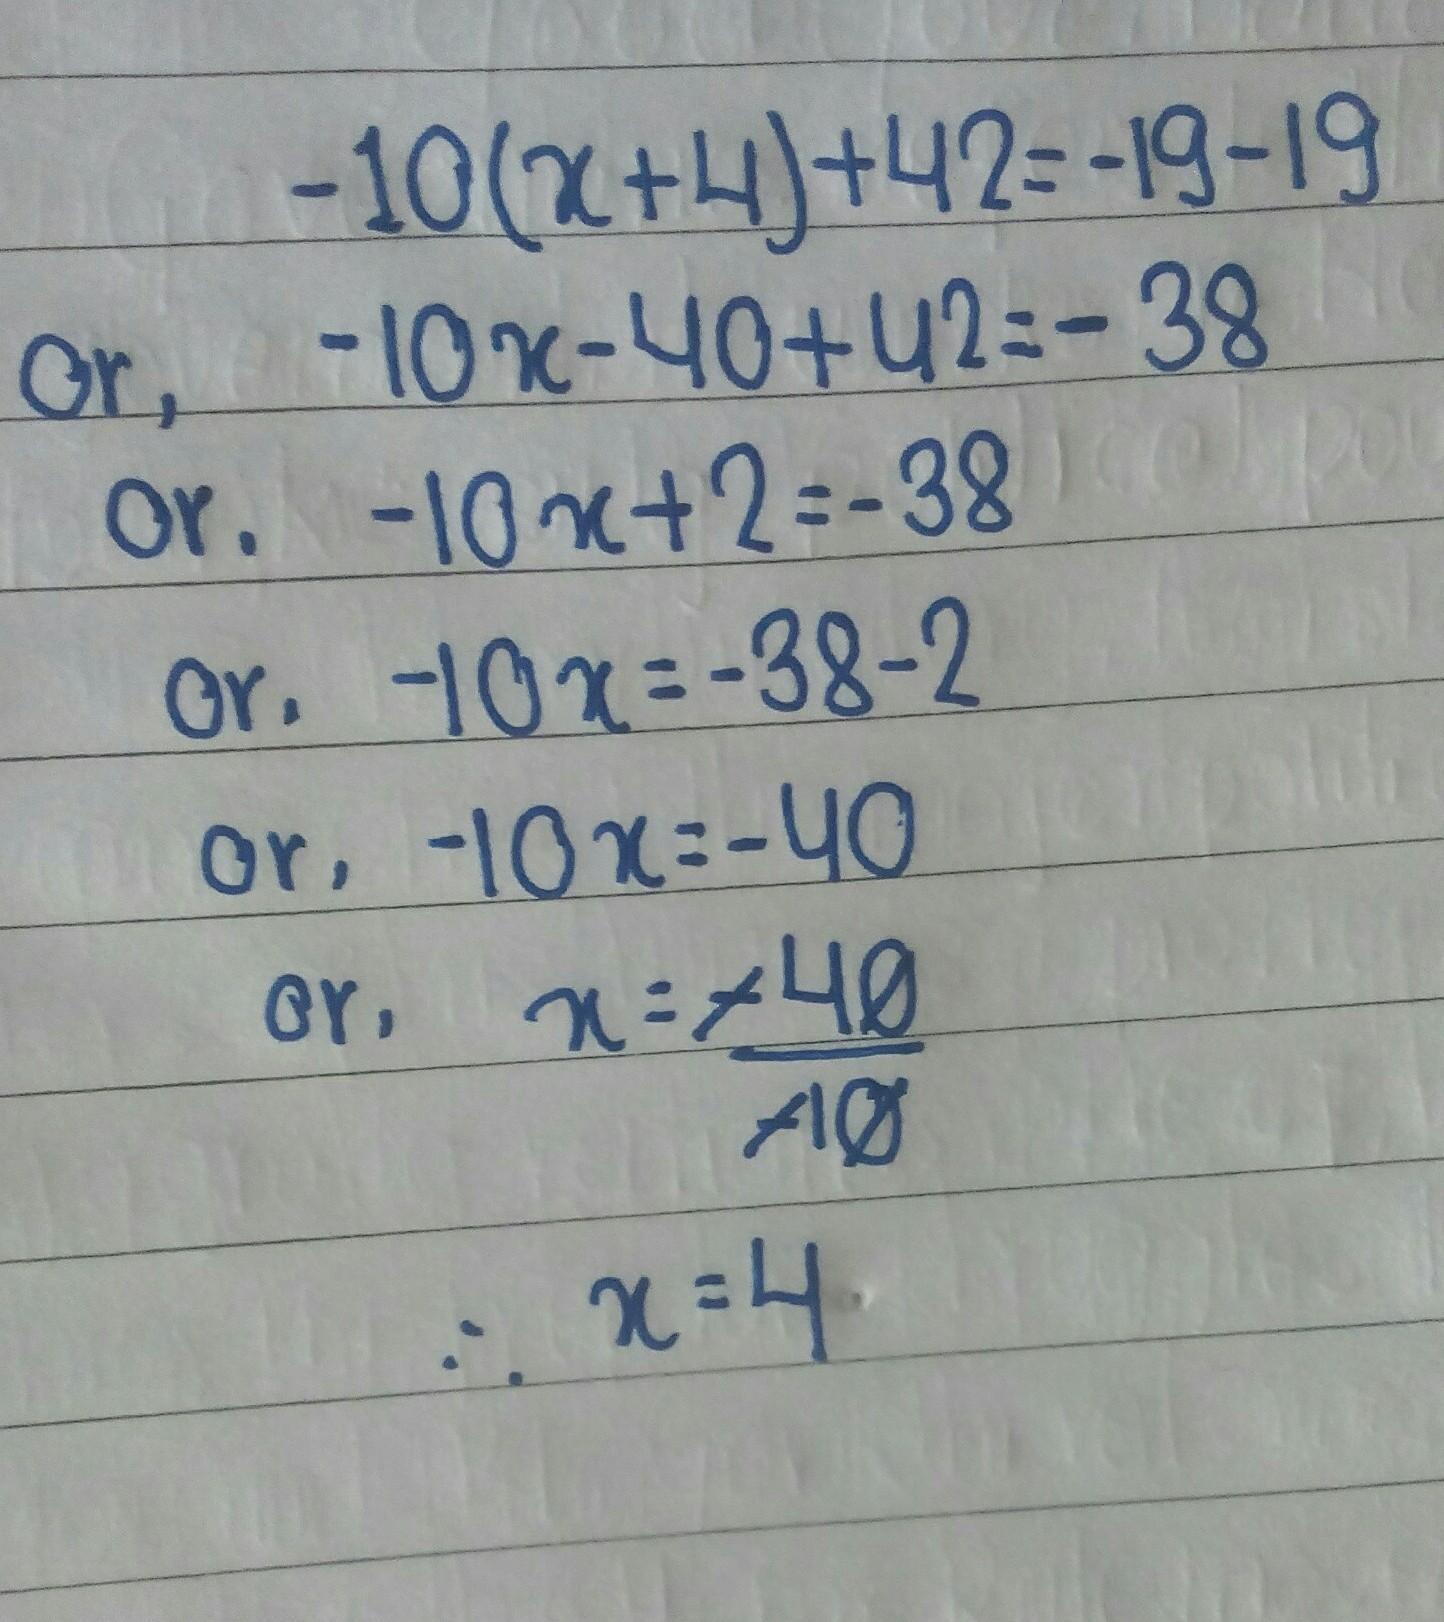 -10(x+4)+42=-19-19
or, -10x-40+42=-38
or. -10x+2=-38
or. -10x=-38-2
or, -10x=-40
or, x=-40
-10
∴ x=4